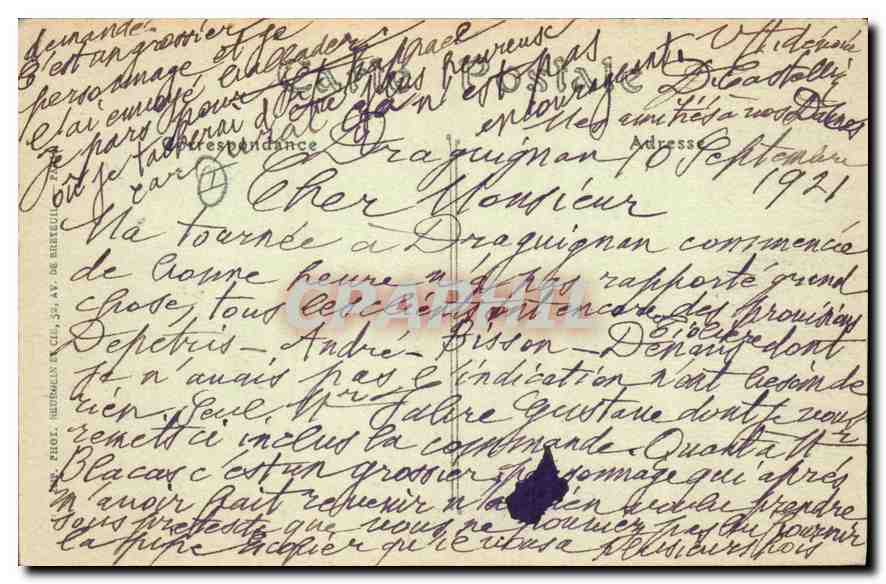 Carte Postale
Correspondance
Adresse
Draguignan 10 Septembre
1921
Cher Monsieur
Ma tournée à Draguignan commencée
de bonne heure n'a pas rapporté grand
chose, tous les clients ont encore des provisions
Depétris - André - Bisson - Denans dont
je n'avais pas l'indication n'ont besoin de
rien. Seul Mr Fabre Gustave dont je vous
remets ci inclus la commande. Quant à Mr
Blacas c'est un grossier personnage qui après
m'avoir fait revenir n'a rien voulu prendre
sous prétexte que vous ne pouviez pas lui fournir
la pipe qu'il vous a plusieurs fois
demandé
C'est un grossier
personnage et je
l'ai envoyé
Je pars pour
où je tacherai d'être plus heureux
car ça n'est pas
encourageant.
Mes amitiés à vos Dames
V/ dévoué
D. Castelli
1
IMP. PHOT. NEURDEIN ET CIE, 52, AV. DE BRETEUIL - PARIS
CPAPHIL